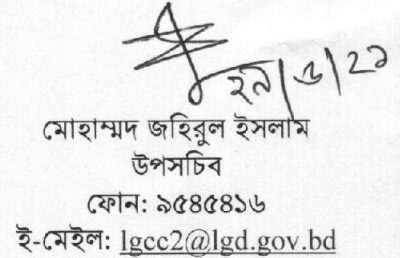 ২৯/৬/২১
মোহাম্মদ জহিরুল ইসলাম
উপসচিব
ফোন: ৯৫৪৫৪১৬
ই-মেইল: lgcc2@lgd.gov.bd